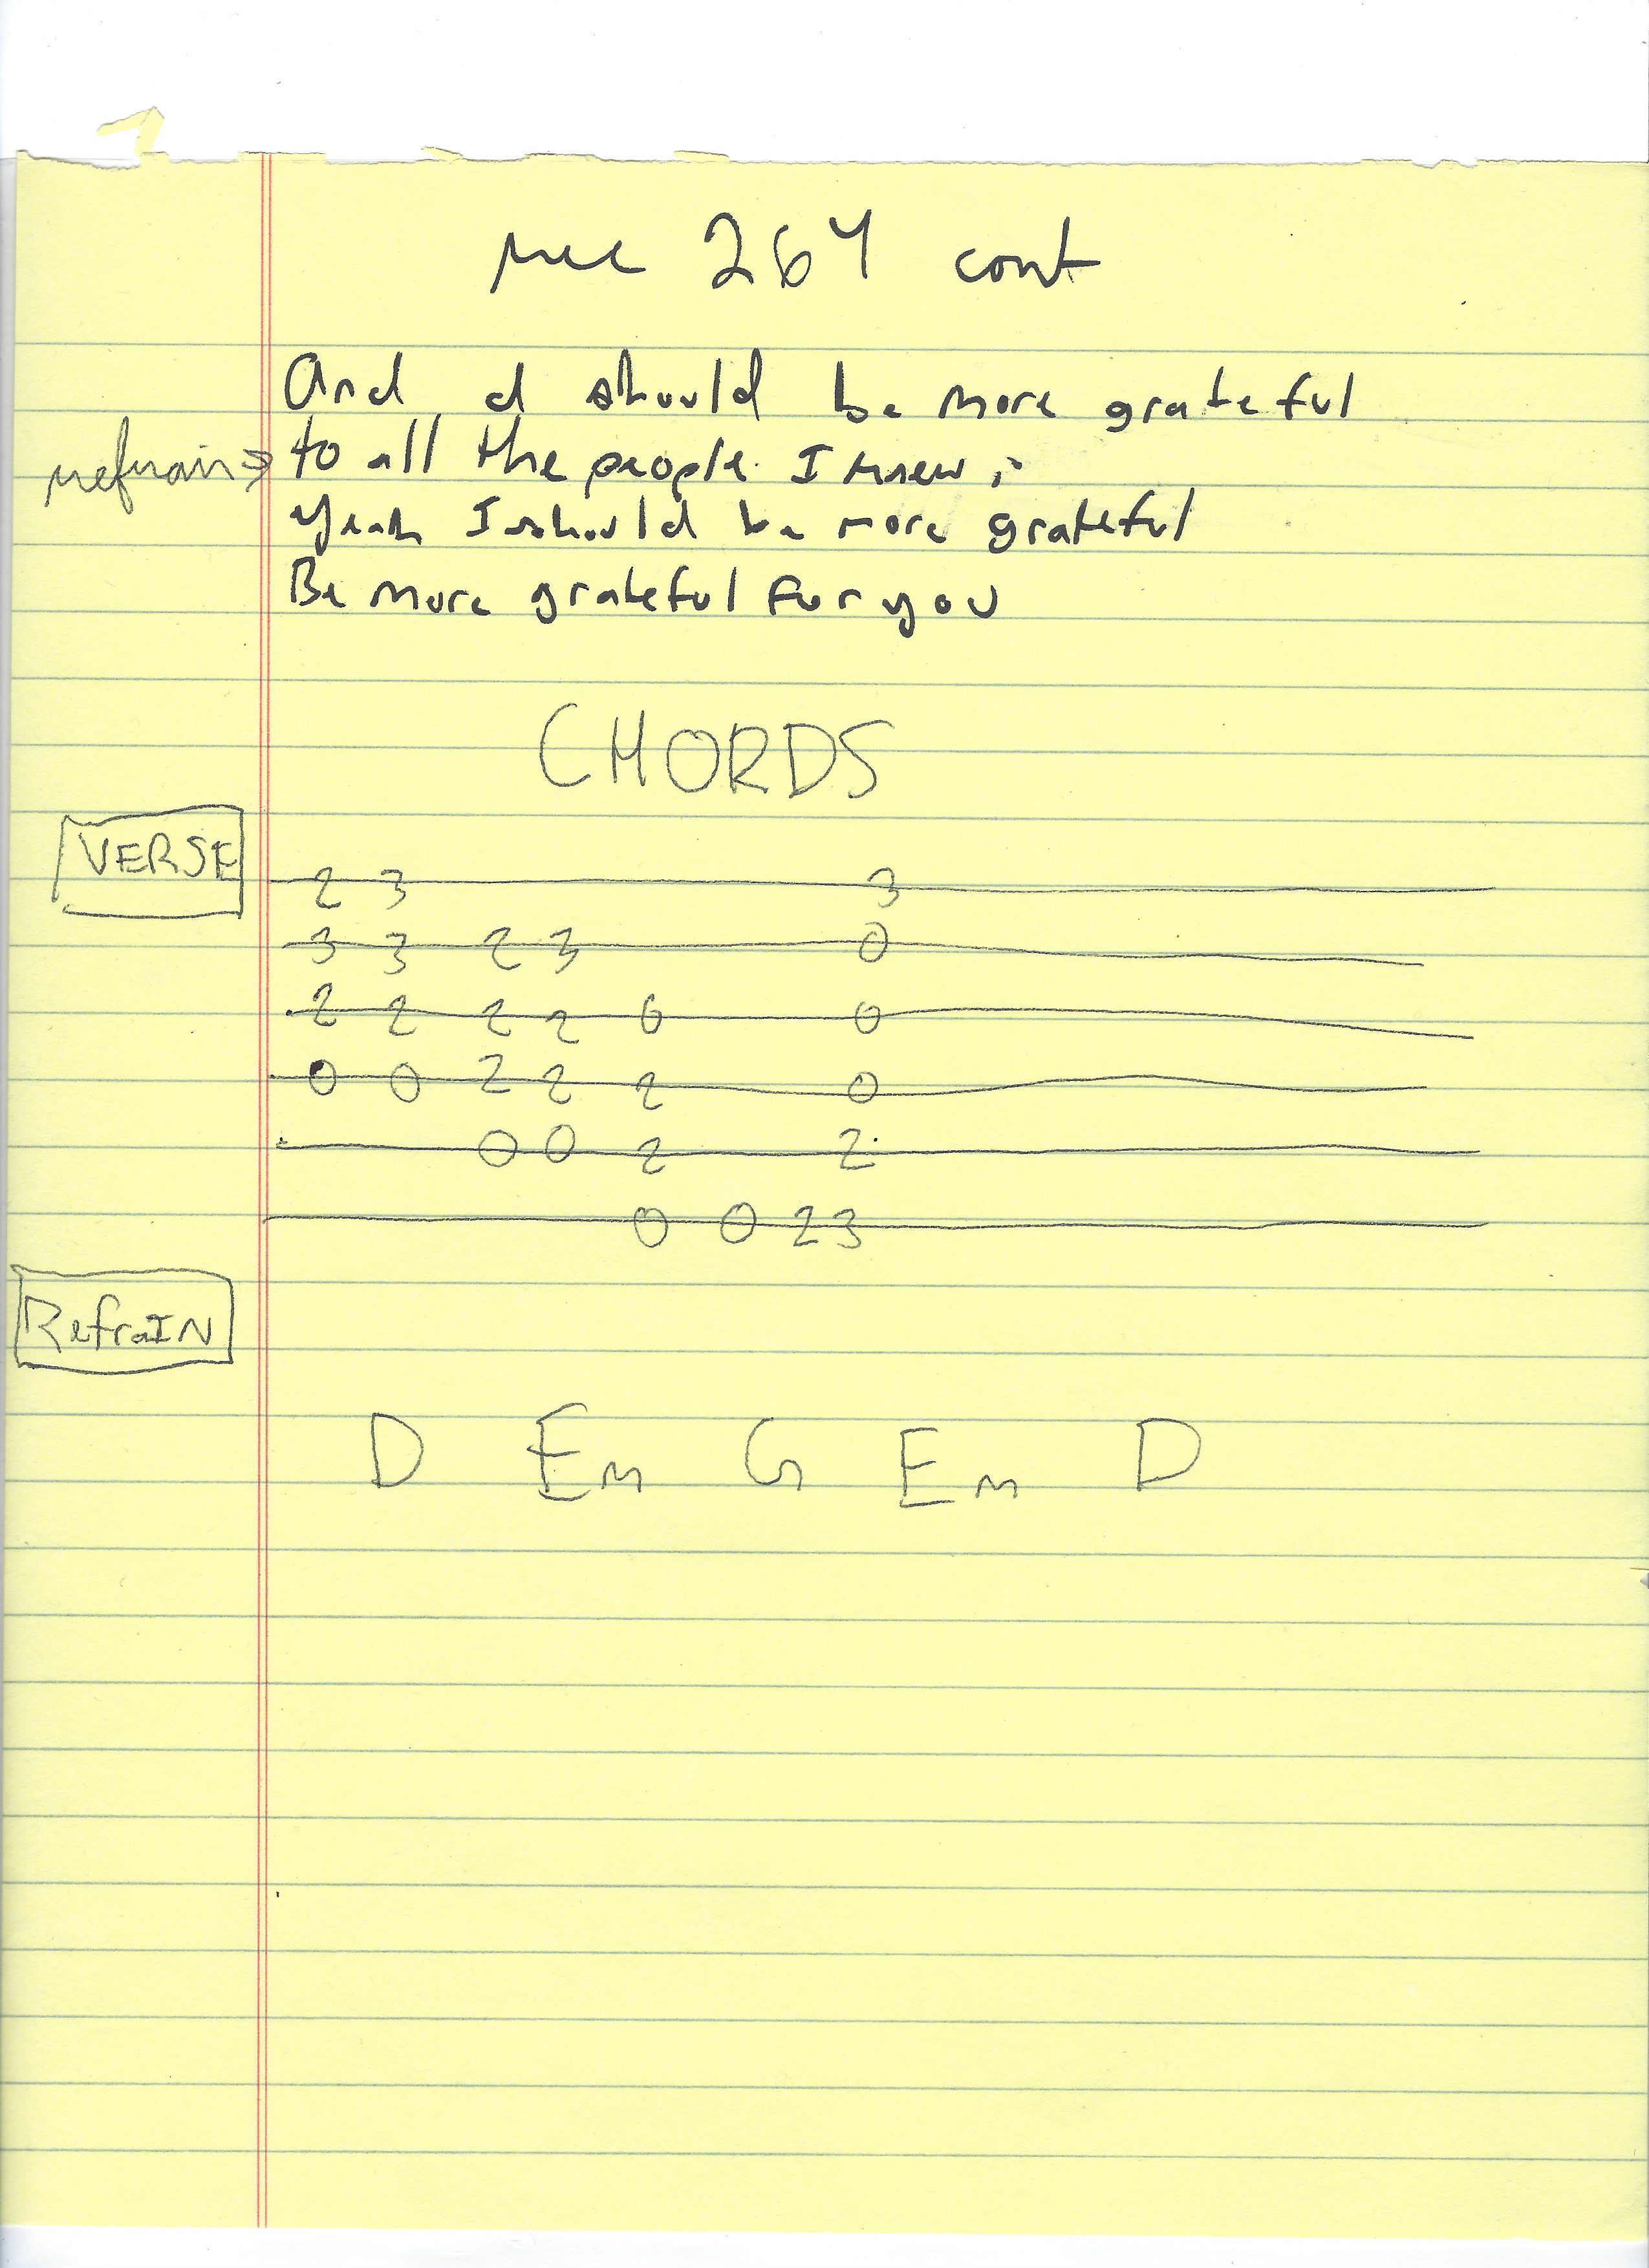 rec 264 cont
And I should be more grateful
refrain⇒ to all the people I knew,
Yeah I should be more grateful
Be more grateful for you
CHORDS
VERSE
2 3 3
3 3 2 3 0
2 2 2 2 0 0
0 0 2 2 2 0
0 0 2 2
0 0 2 3
RefraIN
D Em G Em D